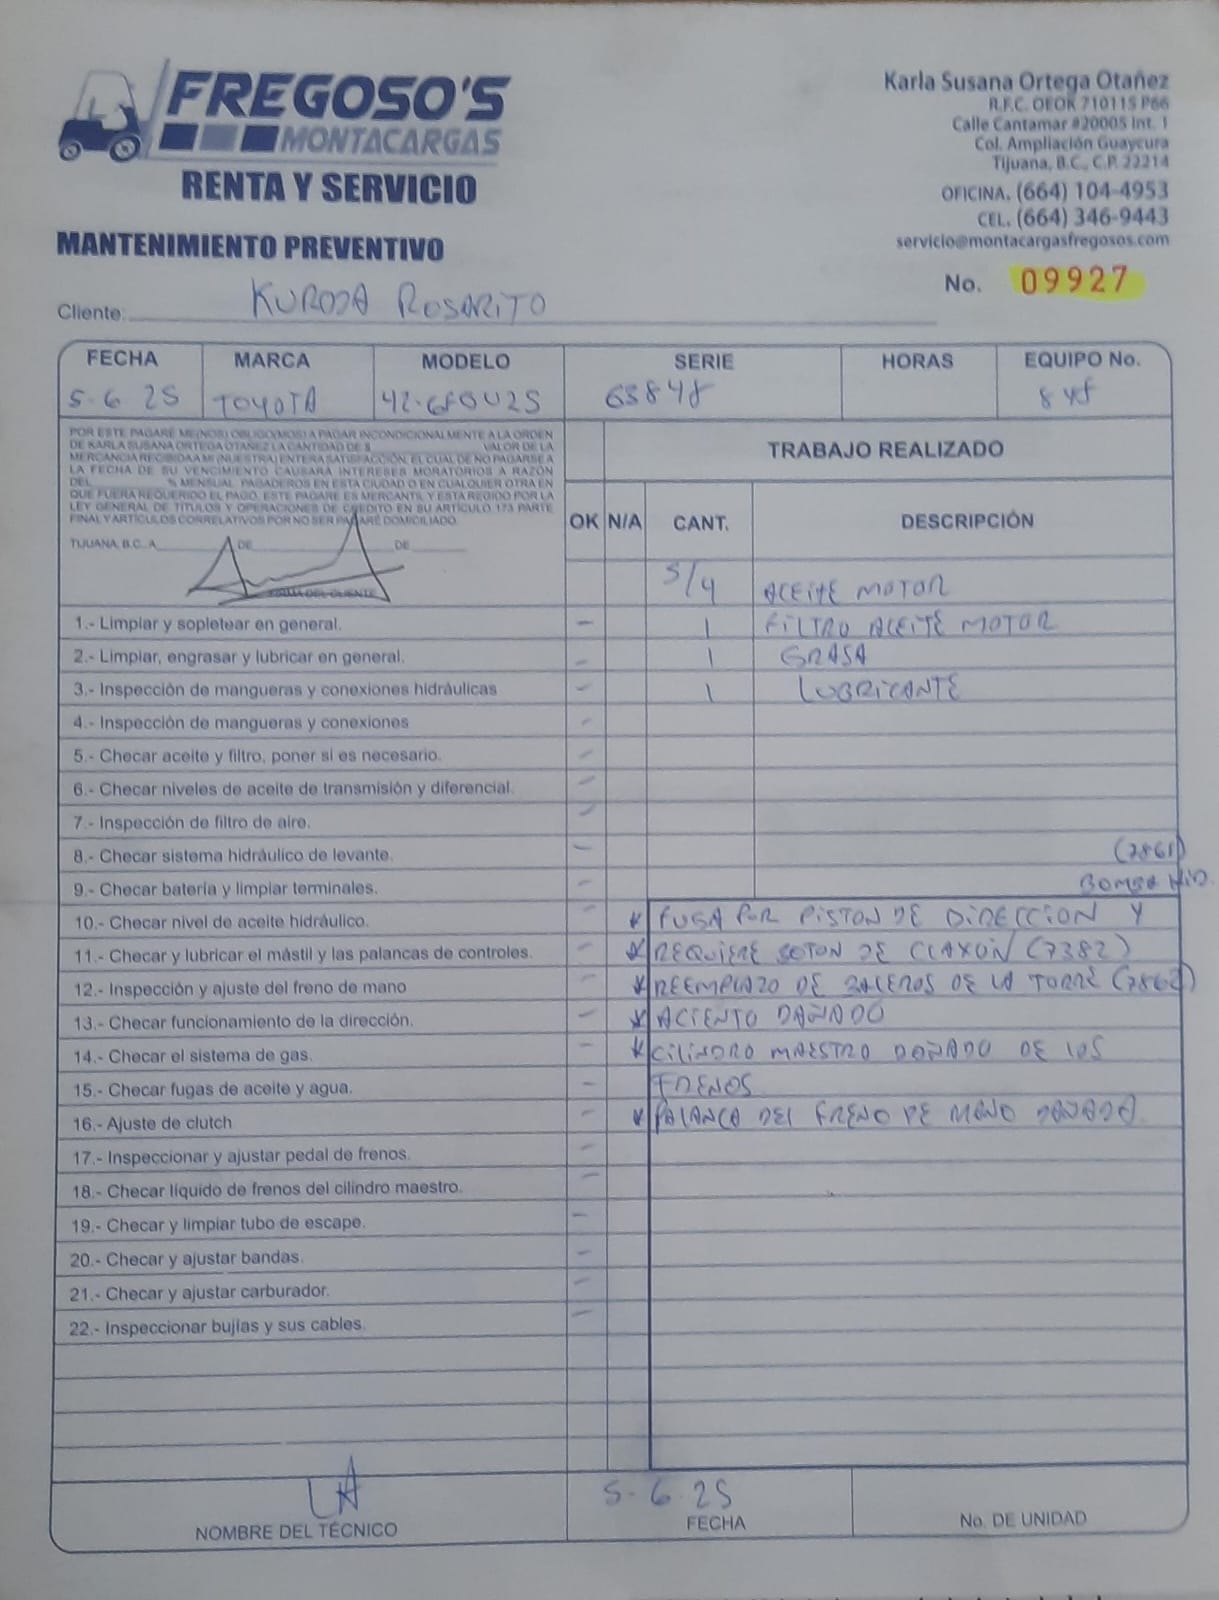 FREGOSO'S
MONTACARGAS
RENTA Y SERVICIO
MANTENIMIENTO PREVENTIVO
Karla Susana Ortega Otañez
R.F.C. OEOK 710115 P66
Calle Cantamar #20005 Int. 1
Col. Ampliación Guaycura
Tijuana, B.C., C.P. 22214
OFICINA. (664) 104-4953
CEL. (664) 346-9443
servicio@montacargasfregosos.com
No. 09927
Cliente: KURODA ROSARITO
FECHA MARCA MODELO SERIE HORAS EQUIPO No.
5-6 25 TOYOTA 42-6FGU25 63848 848
POR ESTE PAGARÉ ME(NOS) OBLIGO(MOS) A PAGAR INCONDICIONALMENTE A LA ORDEN
DE KARLA SUSANA ORTEGA OTAÑEZ LA CANTIDAD DE $ VALOR DE LA
MERCANCIA RECIBIDA A MI (NUESTRA) ENTERA SATISFACCIÓN, EL CUAL DE NO PAGARSE A
LA FECHA DE SU VENCIMIENTO CAUSARÁ INTERESES MORATORIOS A RAZÓN
DEL % MENSUAL, PAGADEROS EN ESTA CIUDAD O EN CUALQUIER OTRA EN
QUE FUERA REQUERIDO EL PAGO, ESTE PAGARE ES MERCANTIL Y ESTA REGIDO POR LA
LEY GENERAL DE TITULOS Y OPERACIONES DE CRÉDITO EN SU ARTÍCULO 173 PARTE
FINAL Y ARTÍCULOS CORRELATIVOS POR NO SER PAGARÉ DOMICILIADO.
TIJUANA, B.C. A DE DE
FIRMA DEL CLIENTE
TRABAJO REALIZADO
OK N/A CANT. DESCRIPCIÓN
5/4 ACEITE MOTOR
1.- Limpiar y sopletear en general. – 1 FILTRO ACEITE MOTOR
2.- Limpiar, engrasar y lubricar en general. – 1 GRASA
3.- Inspección de mangueras y conexiones hidráulicas – 1 LUBRICANTE
4.- Inspección de mangueras y conexiones –
5.- Checar aceite y filtro, poner si es necesario. –
6.- Checar niveles de aceite de transmisión y diferencial. –
7.- Inspección de filtro de aire. –
8.- Checar sistema hidráulico de levante. – (7861)
9.- Checar bateria y limpiar terminales. – BOMBA HID.
10.- Checar nivel de aceite hidráulico. – * FUGA POR PISTON DE DIRECCION Y
11.- Checar y lubricar el mástil y las palancas de controles. – * REQUIERE BOTON DE CLAXON (7382)
12.- Inspección y ajuste del freno de mano – * REEMPLAZO DE BALEROS DE LA TORRE (7862)
13.- Checar funcionamiento de la dirección. – * ACIENTO DAÑADO
14.- Checar el sistema de gas. – * CILINDRO MAESTRO DAÑADO DE LOS
15.- Checar fugas de aceite y agua. – FRENOS
16.- Ajuste de clutch – * PALANCA DEL FRENO DE MANO DAÑADA
17.- Inspeccionar y ajustar pedal de frenos. –
18.- Checar líquido de frenos del cilindro maestro. –
19.- Checar y limpiar tubo de escape. –
20.- Checar y ajustar bandas. –
21.- Checar y ajustar carburador. –
22.- Inspeccionar bujías y sus cables. –
5-6 25
NOMBRE DEL TÉCNICO FECHA No. DE UNIDAD